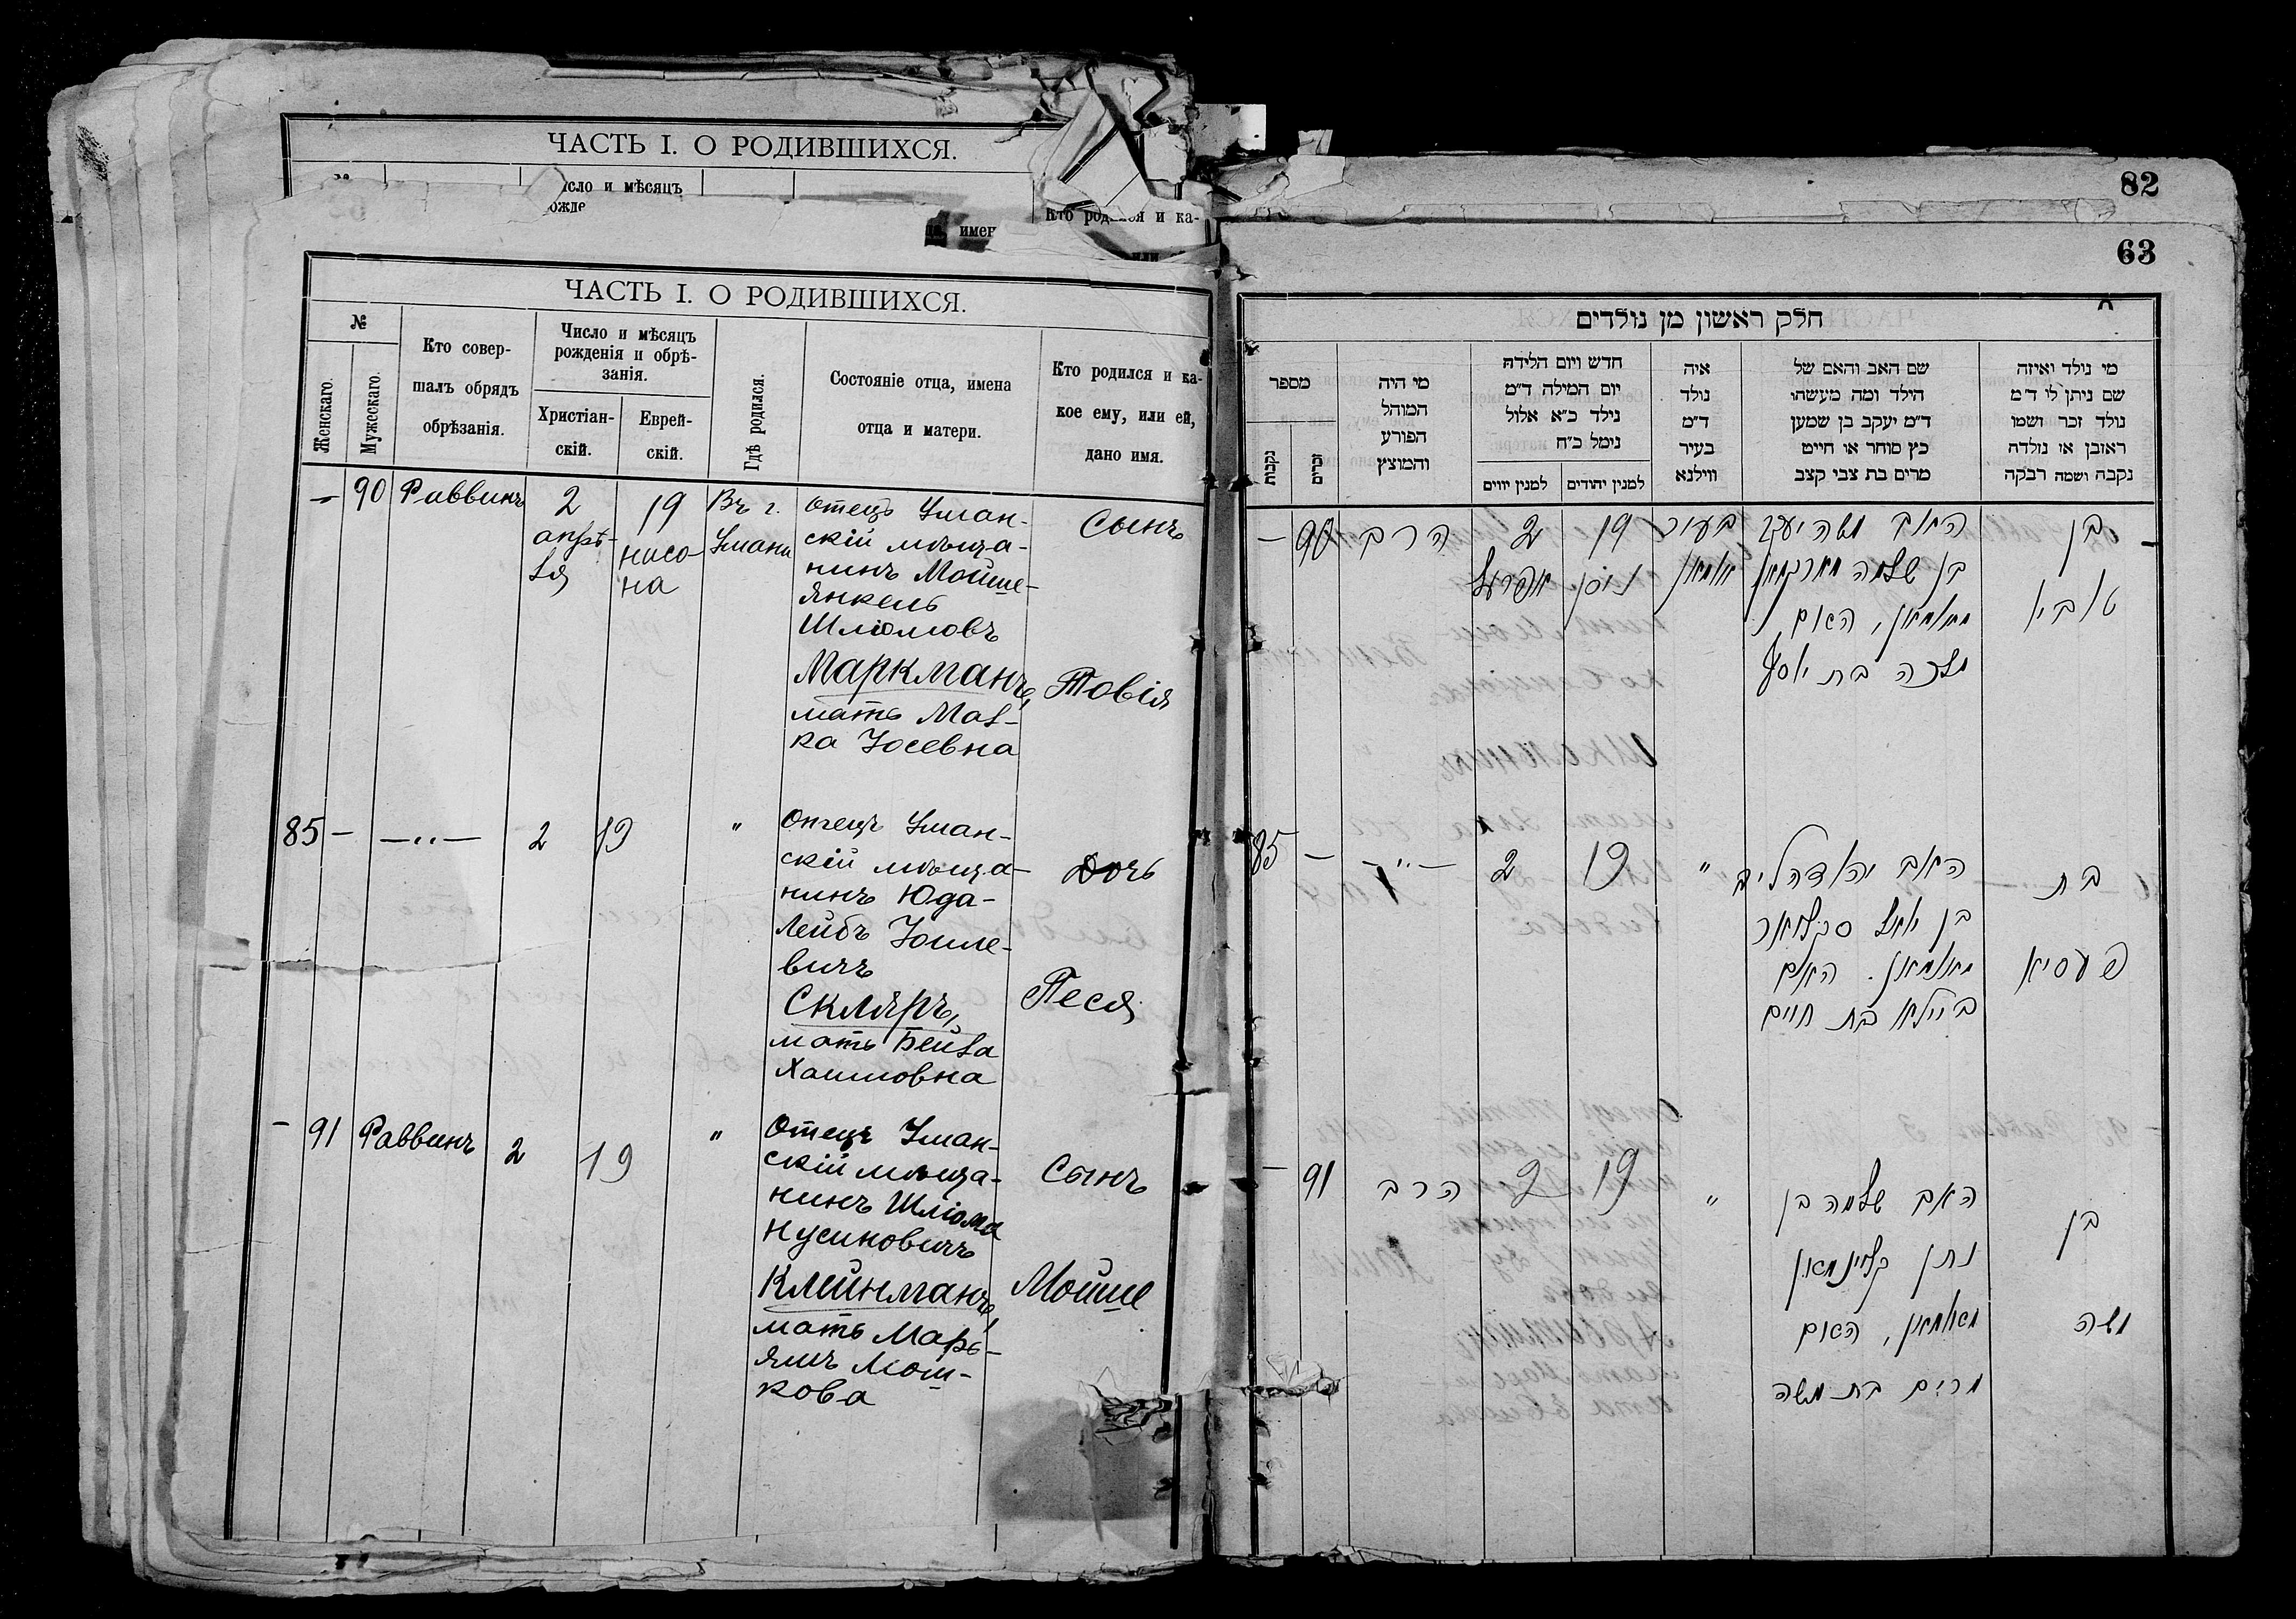 ЧАСТЬ I. О РОДИВШИХСЯ.
исло и мѣсяцъ
ожде
Кто родился и ка-
имен
или
82
63
ЧАСТЬ I. О РОДИВШИХСЯ.
№
Женскаго.
Мужескаго.
Кто совер-
шалъ обрядъ
обрѣзанія.
Число и мѣсяцъ
рожденія и обрѣ-
занія.
Христіан-
скій.
Еврей-
скій.
Гдѣ родился.
Состояніе отца, имена
отца и матери.
Кто родился и ка-
кое ему, или ей,
дано имя.
– 90 Раввинъ
2
апрѣ-
ля
19
нисо-
на
Въ г.
Умани
Отецъ Уман-
скій мѣща-
нинъ Мойше-
Янкель
Шліомовъ
Маркманъ,
мать Мал-
ка Іосевна
Сынъ
Товія
85 – —"— 2 19 "
Отецъ Уман-
скій мѣща-
нинъ Юда-
Лейбъ Іоиле-
вичъ
Скляръ,
мать Бейла
Хаимовна
Дочь
Песя
– 91 Раввинъ 2 19 "
Отецъ Уман-
скій мѣща-
нинъ Шліома
Нусиновичъ
Клейнманъ,
мать Марь-
ямъ Мош-
кова
Сынъ
Мойше
חלק ראשון מן נולדים
מספר
נקבות
זכרים
מי היה
המוהל
הפורע
והמוצץ
חדש ויום הלידה
יום המילה ד״מ
נילד כ״א אלול
נימל כ״ח
למנין יווים
למנין יהודים
איה
נולד
ד״מ
בעיר
ווילנא
שם האב והאם של
הילד ומה מעשהו
ד״מ יעקב בן שמען
כץ סוחר או חייט
מרים בת צבי קצב
מי נולד ואיזה
שם ניתן לו ד״מ
נולד זכר ושמו
ראובן או נולדה
נקבה ושמה רבקה
– 90 הרב
2
אפרעל
19
ניסן
בעיר
אומאן
האב משה יעקב
בן שלמה מארקמאן
מאומאן, האם
מלכה בת יוסף
בן
טוביא
85 – —"— 2 19 "
האב יהודה ליב
בן יואל סקליאר
מאומאן. האם
ביילא בת חיים
בת
פעסיא
– 91 הרב 2 19 "
האב שלמה בן
נתן קליינמאן
מאומאן, האם
מרים בת משה
בן
משה